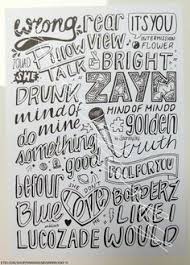 wrong
rear view
IT'S YOU
INTERMISSION FLOWER
PILLOW TALK
& BRIGHT
SHE
ZAYN
DRUNK
MIND OF MINDD
mind of do mine
#golden
do something good
truth
BeFoUr
FOOL FOR YOU
SHE DON'T LOVE ME
Blue
BORDERZ
LIKE I WOULD
LUCOZADE